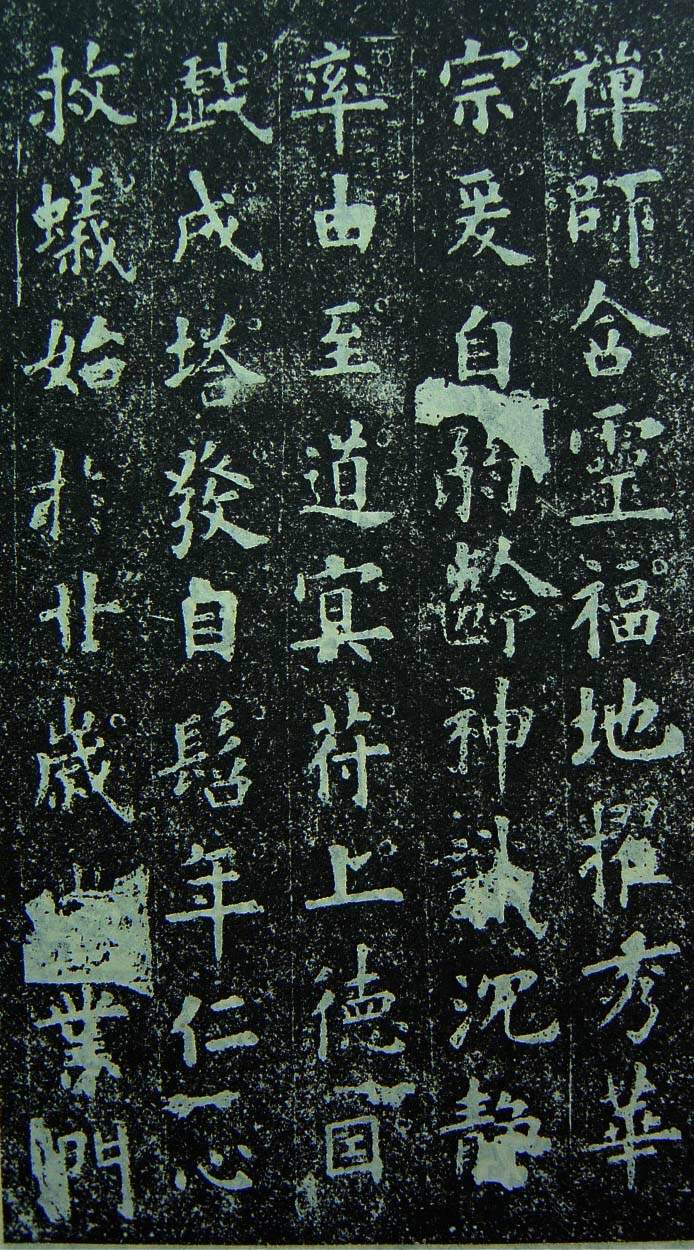 禪師含靈福地擢秀華
宗爰自弱齡神識沉靜
率由至道冥符上德因
戲成塔發自髫年仁心
救蟻始於卝歲業門